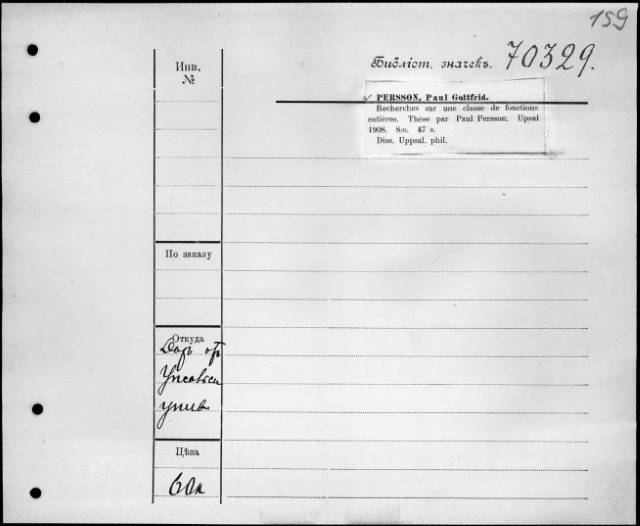 159
Библіот. значекъ. 70329.
Инв.
№
PERSSON, Paul Gottfrid.
Recherches sur une classe de fonctions
entières. Thèse par Paul Persson. Upsal
1908. 8:o. 47 s.
Diss. Uppsal. phil.
По заказу
Откуда
Даръ от
унив
Цѣна
60к